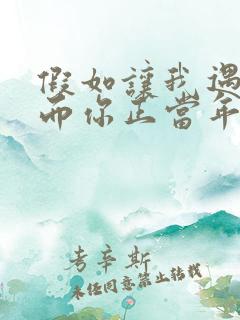 假如讓我遇
而你正當年
考辛斯
未经同意禁止转载